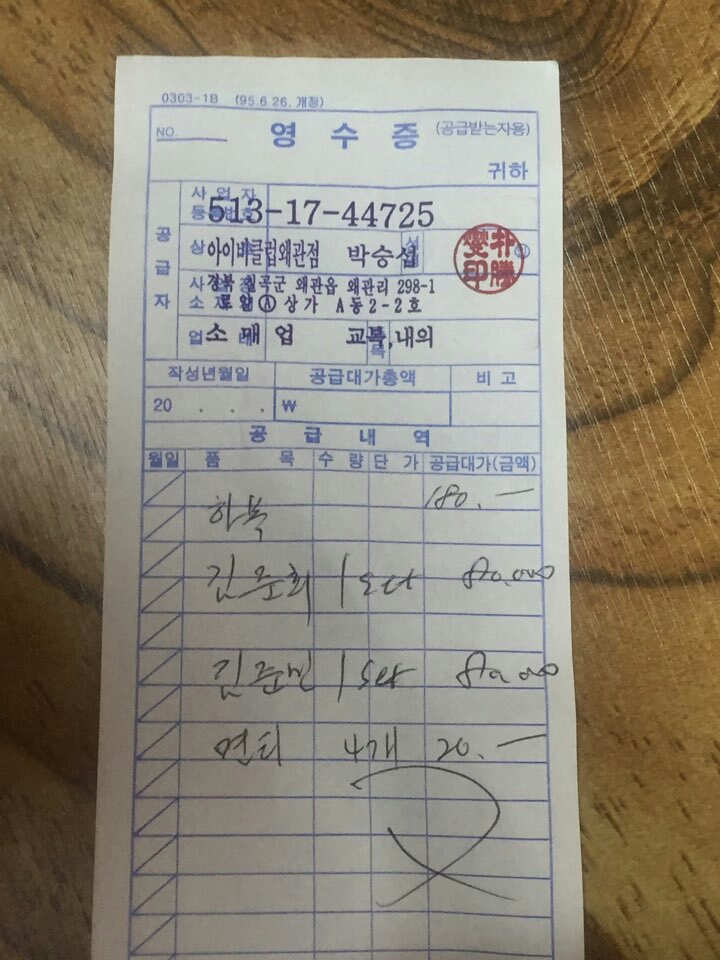 0303-1B (95.6.26. 개정)
NO. 영 수 증 (공급받는자용)
귀하
공급자
사업자등록번호 513-17-44725
상호 아이비클럽왜관점 성명 박승섭 朴勝燮印
사업장소재지 경북 칠곡군 왜관읍 왜관리 298-1
Ⓐ상가 A동2-2호
업태 소매업 종목 교복,내의
작성년월일 공급대가총액 비고
20 . . . ₩
공 급 내 역
월일 품 목 수 량 단 가 공급대가(금액)
하복 180.—
김준희 1 80,000
김준민 1 80,000
면티 4개 20.—